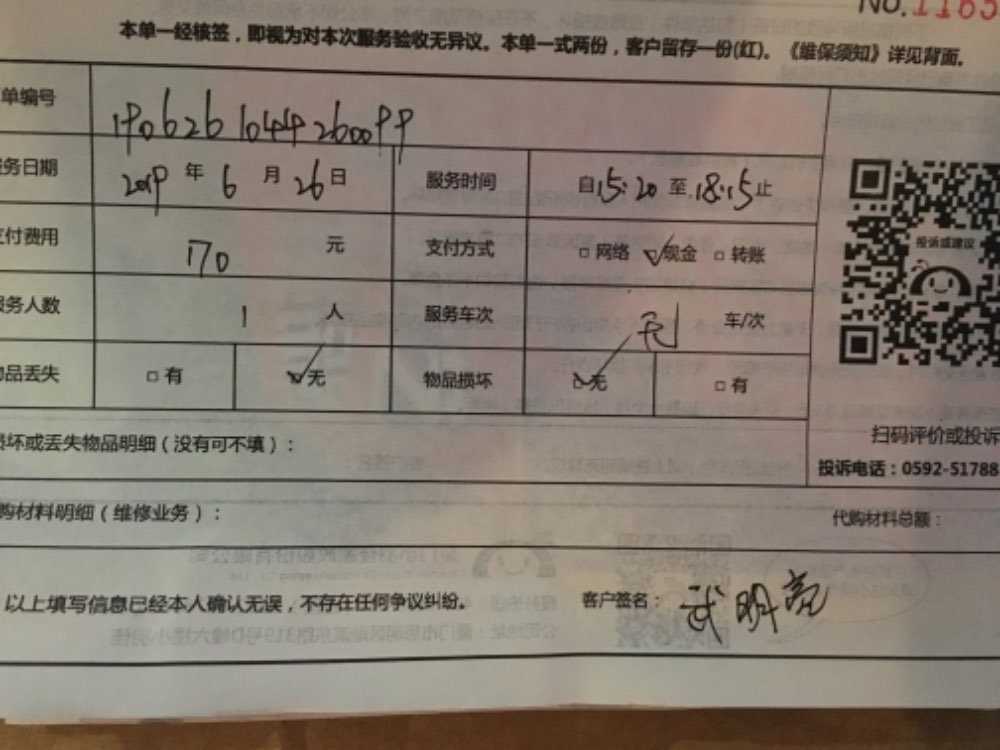 NO.1165
本单一经核签，即视为对本次服务验收无异议。本单一式两份，客户留存一份(红)。《维保须知》详见背面。
单编号 190626104426009９
服务日期 2019 年 6 月 26 日 服务时间 自 15:20 至 18:15 止
支付费用 170 元 支付方式 □ 网络 ☑ 现金 □ 转账
服务人数 1 人 服务车次 无 车/次
物品丢失 □ 有 ☑ 无 物品损坏 ☑ 无 □ 有
投诉或建议
损坏或丢失物品明细（没有可不填）：
扫码评价或投诉
投诉电话：0592-51788
购材料明细（维修业务）：
代购材料总额：
以上填写信息已经本人确认无误，不存在任何争议纠纷。 客户签名： 武明亮